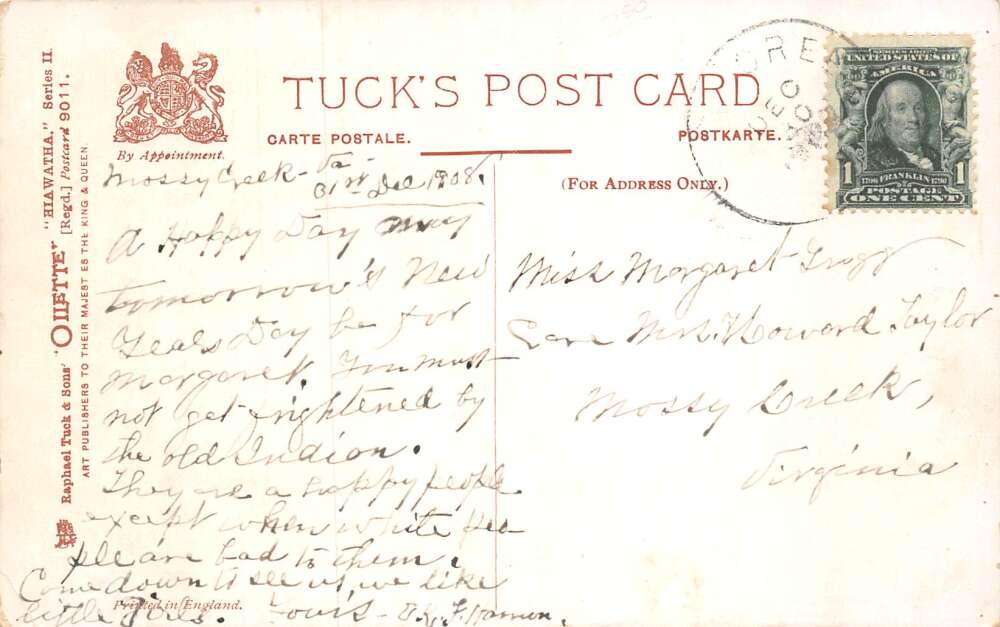 Raphael Tuck & Sons' "OILETTE" [Regd.] Postcard 9011.
"HIAWATHA." Series II.
ART PUBLISHERS TO THEIR MAJESTIES THE KING & QUEEN.
By Appointment.
TUCK'S POST CARD
CARTE POSTALE.
POSTKARTE.
(FOR ADDRESS ONLY.)
DEC
SERIES 1902
UNITED STATES OF
AMERICA
1706 FRANKLIN 1790
1 POSTAGE 1
ONE CENT
Mossy Creek - Va
31st Dec 1908.
A Happy Day may
tomorrow's New
Years Day be for
Margaret. You must
not get frightened by
the old Indian.
They are a happy people
except when white peo
ple are bad to them.
Come down to see us, we like
little girls. Yours -
Printed in England.
Miss Margaret
Care Mrs. Howard Taylor
Mossy Creek,
Virginia